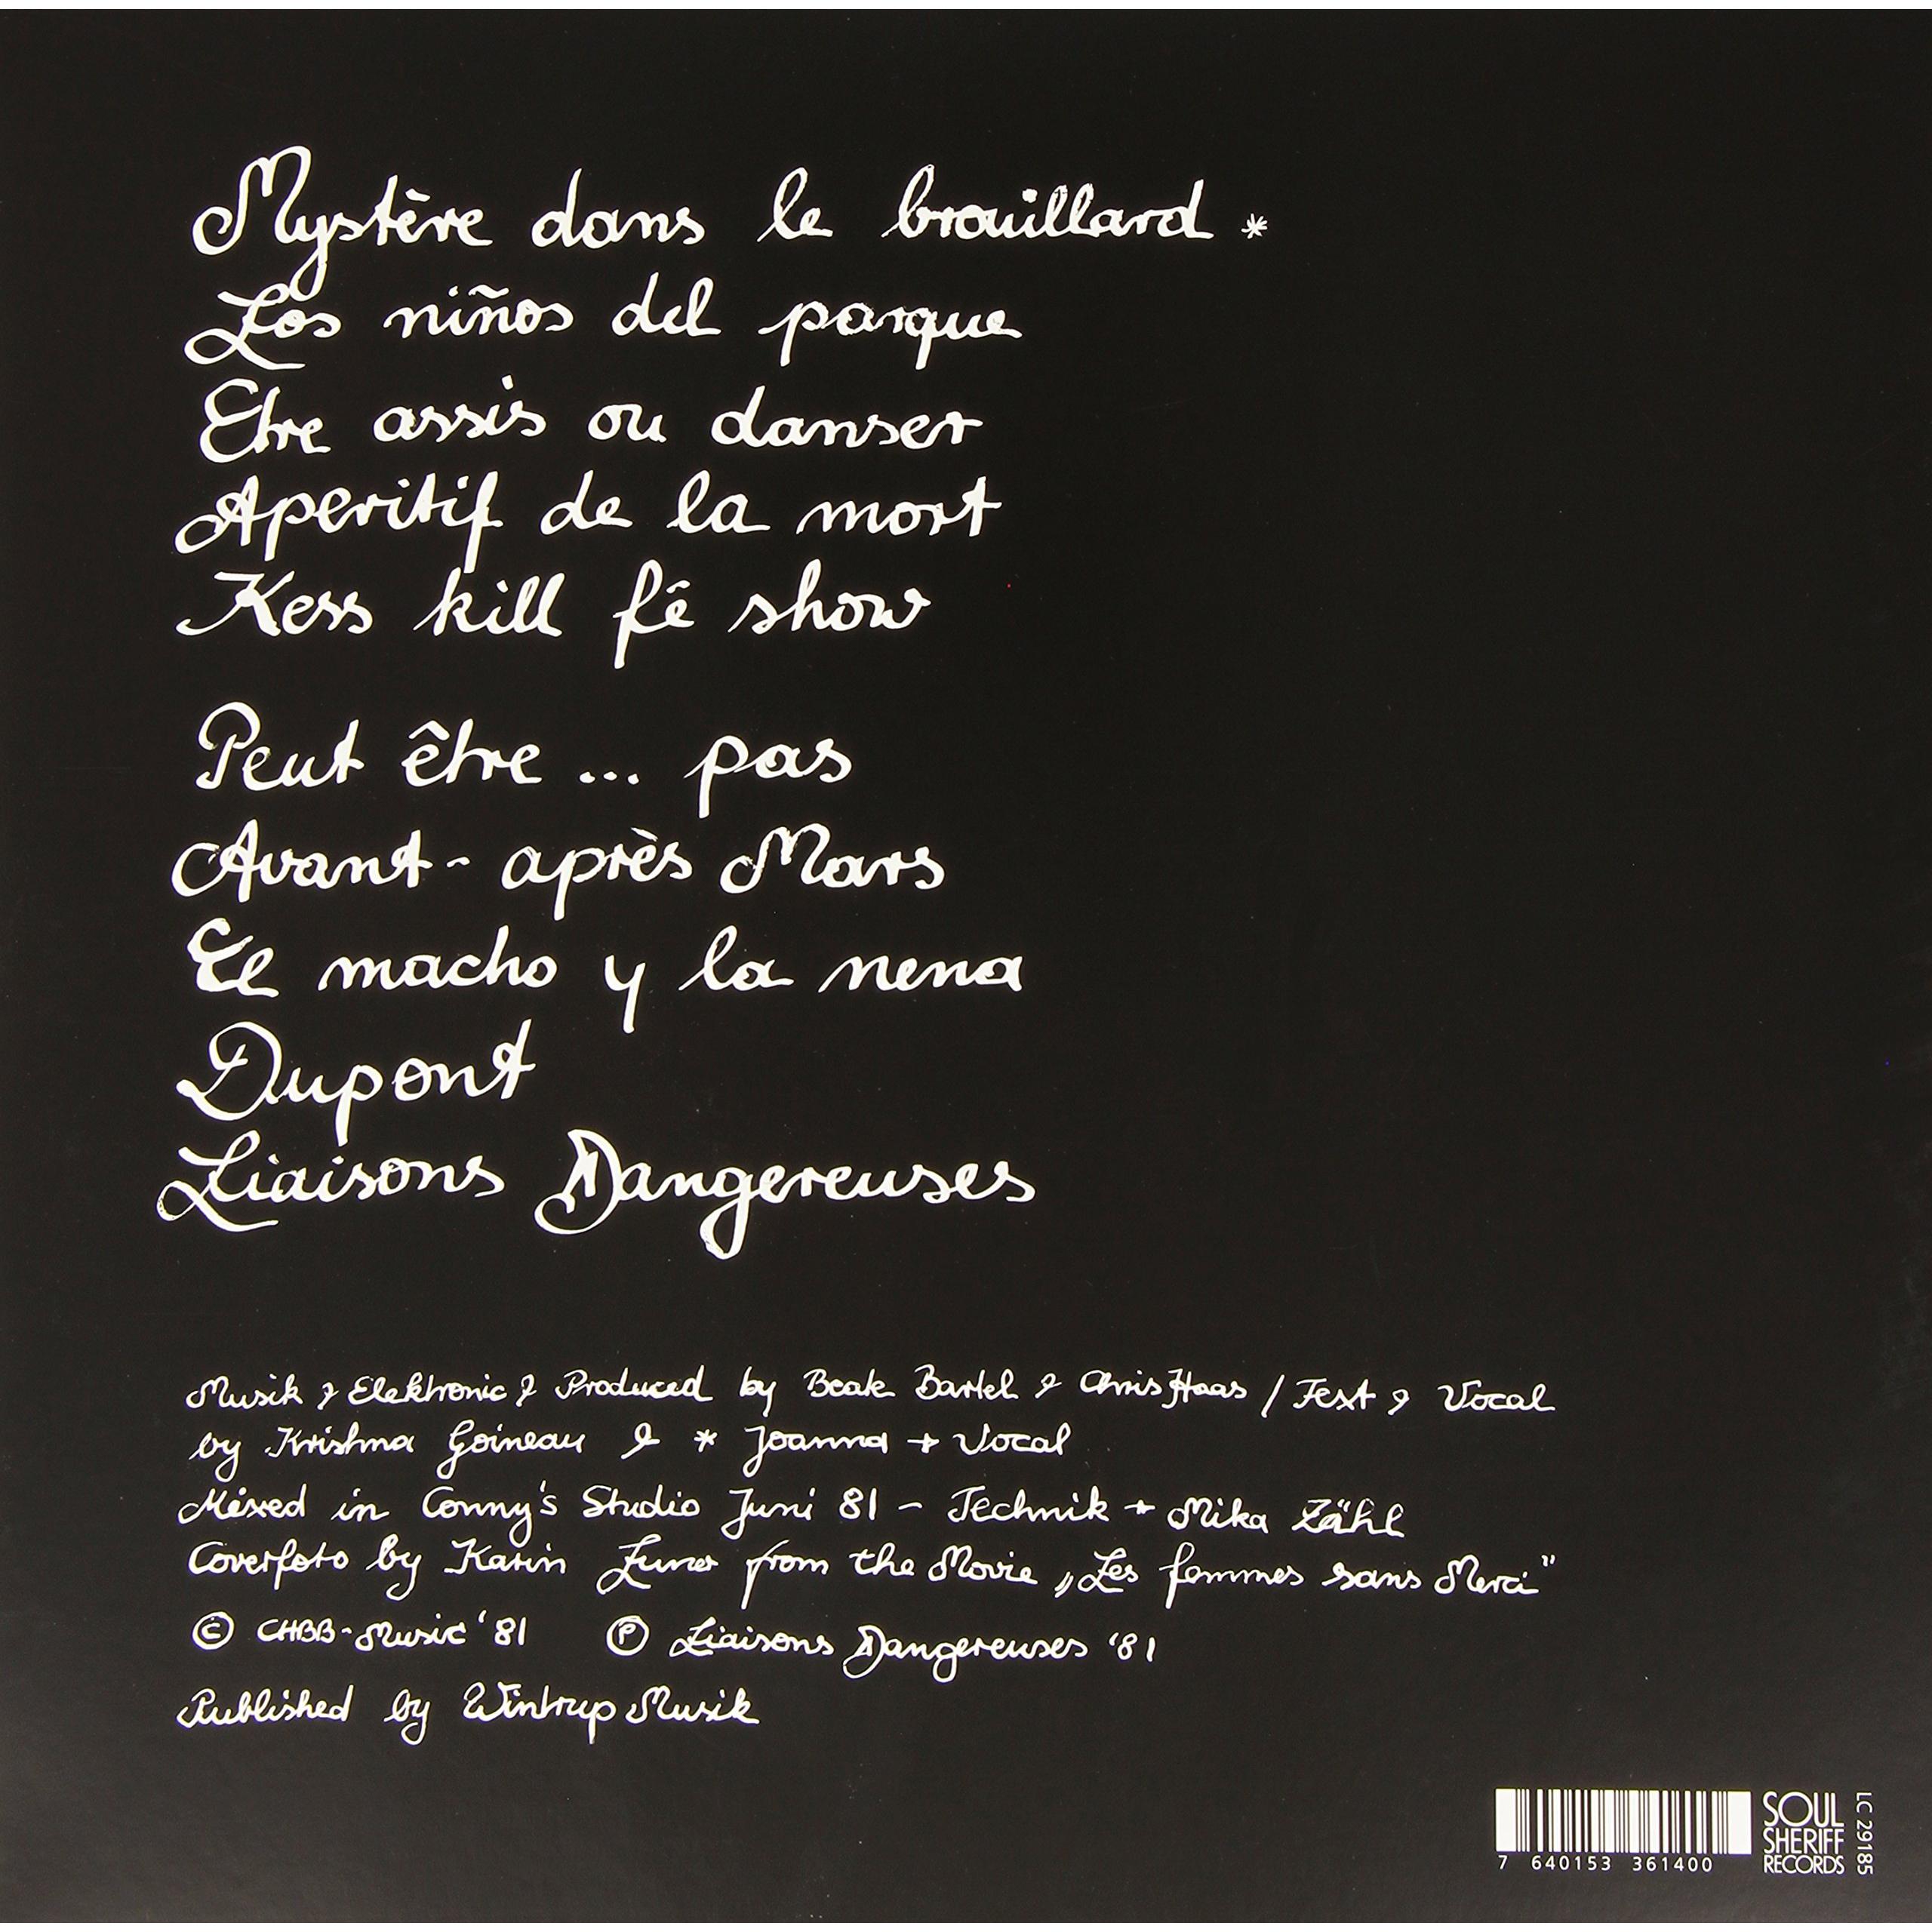 Mystère dans le brouillard *
Los niños del parque
Etre assis ou danser
Aperitif de la mort
Kess kill fê show
Peut être ... pas
Avant - après Mars
El macho y la nena
Dupont
Liaisons Dangereuses
Musik & Elektronic & Produced by Beate Bartel & Chris Haas / Text & Vocal
by Krishna Goineau & * Joanna + Vocal
Mixed in Conny's Studio Juni 81 - Technik + Mika Zähl
Coverfoto by Karin Luner from the Movie „Les femmes sans Merci"
© CHBB-Music '81 ℗ Liaisons Dangereuses '81
Published by Wintrup Musik
7 640153 361400
SOUL
SHERIFF
RECORDS
LC 29185